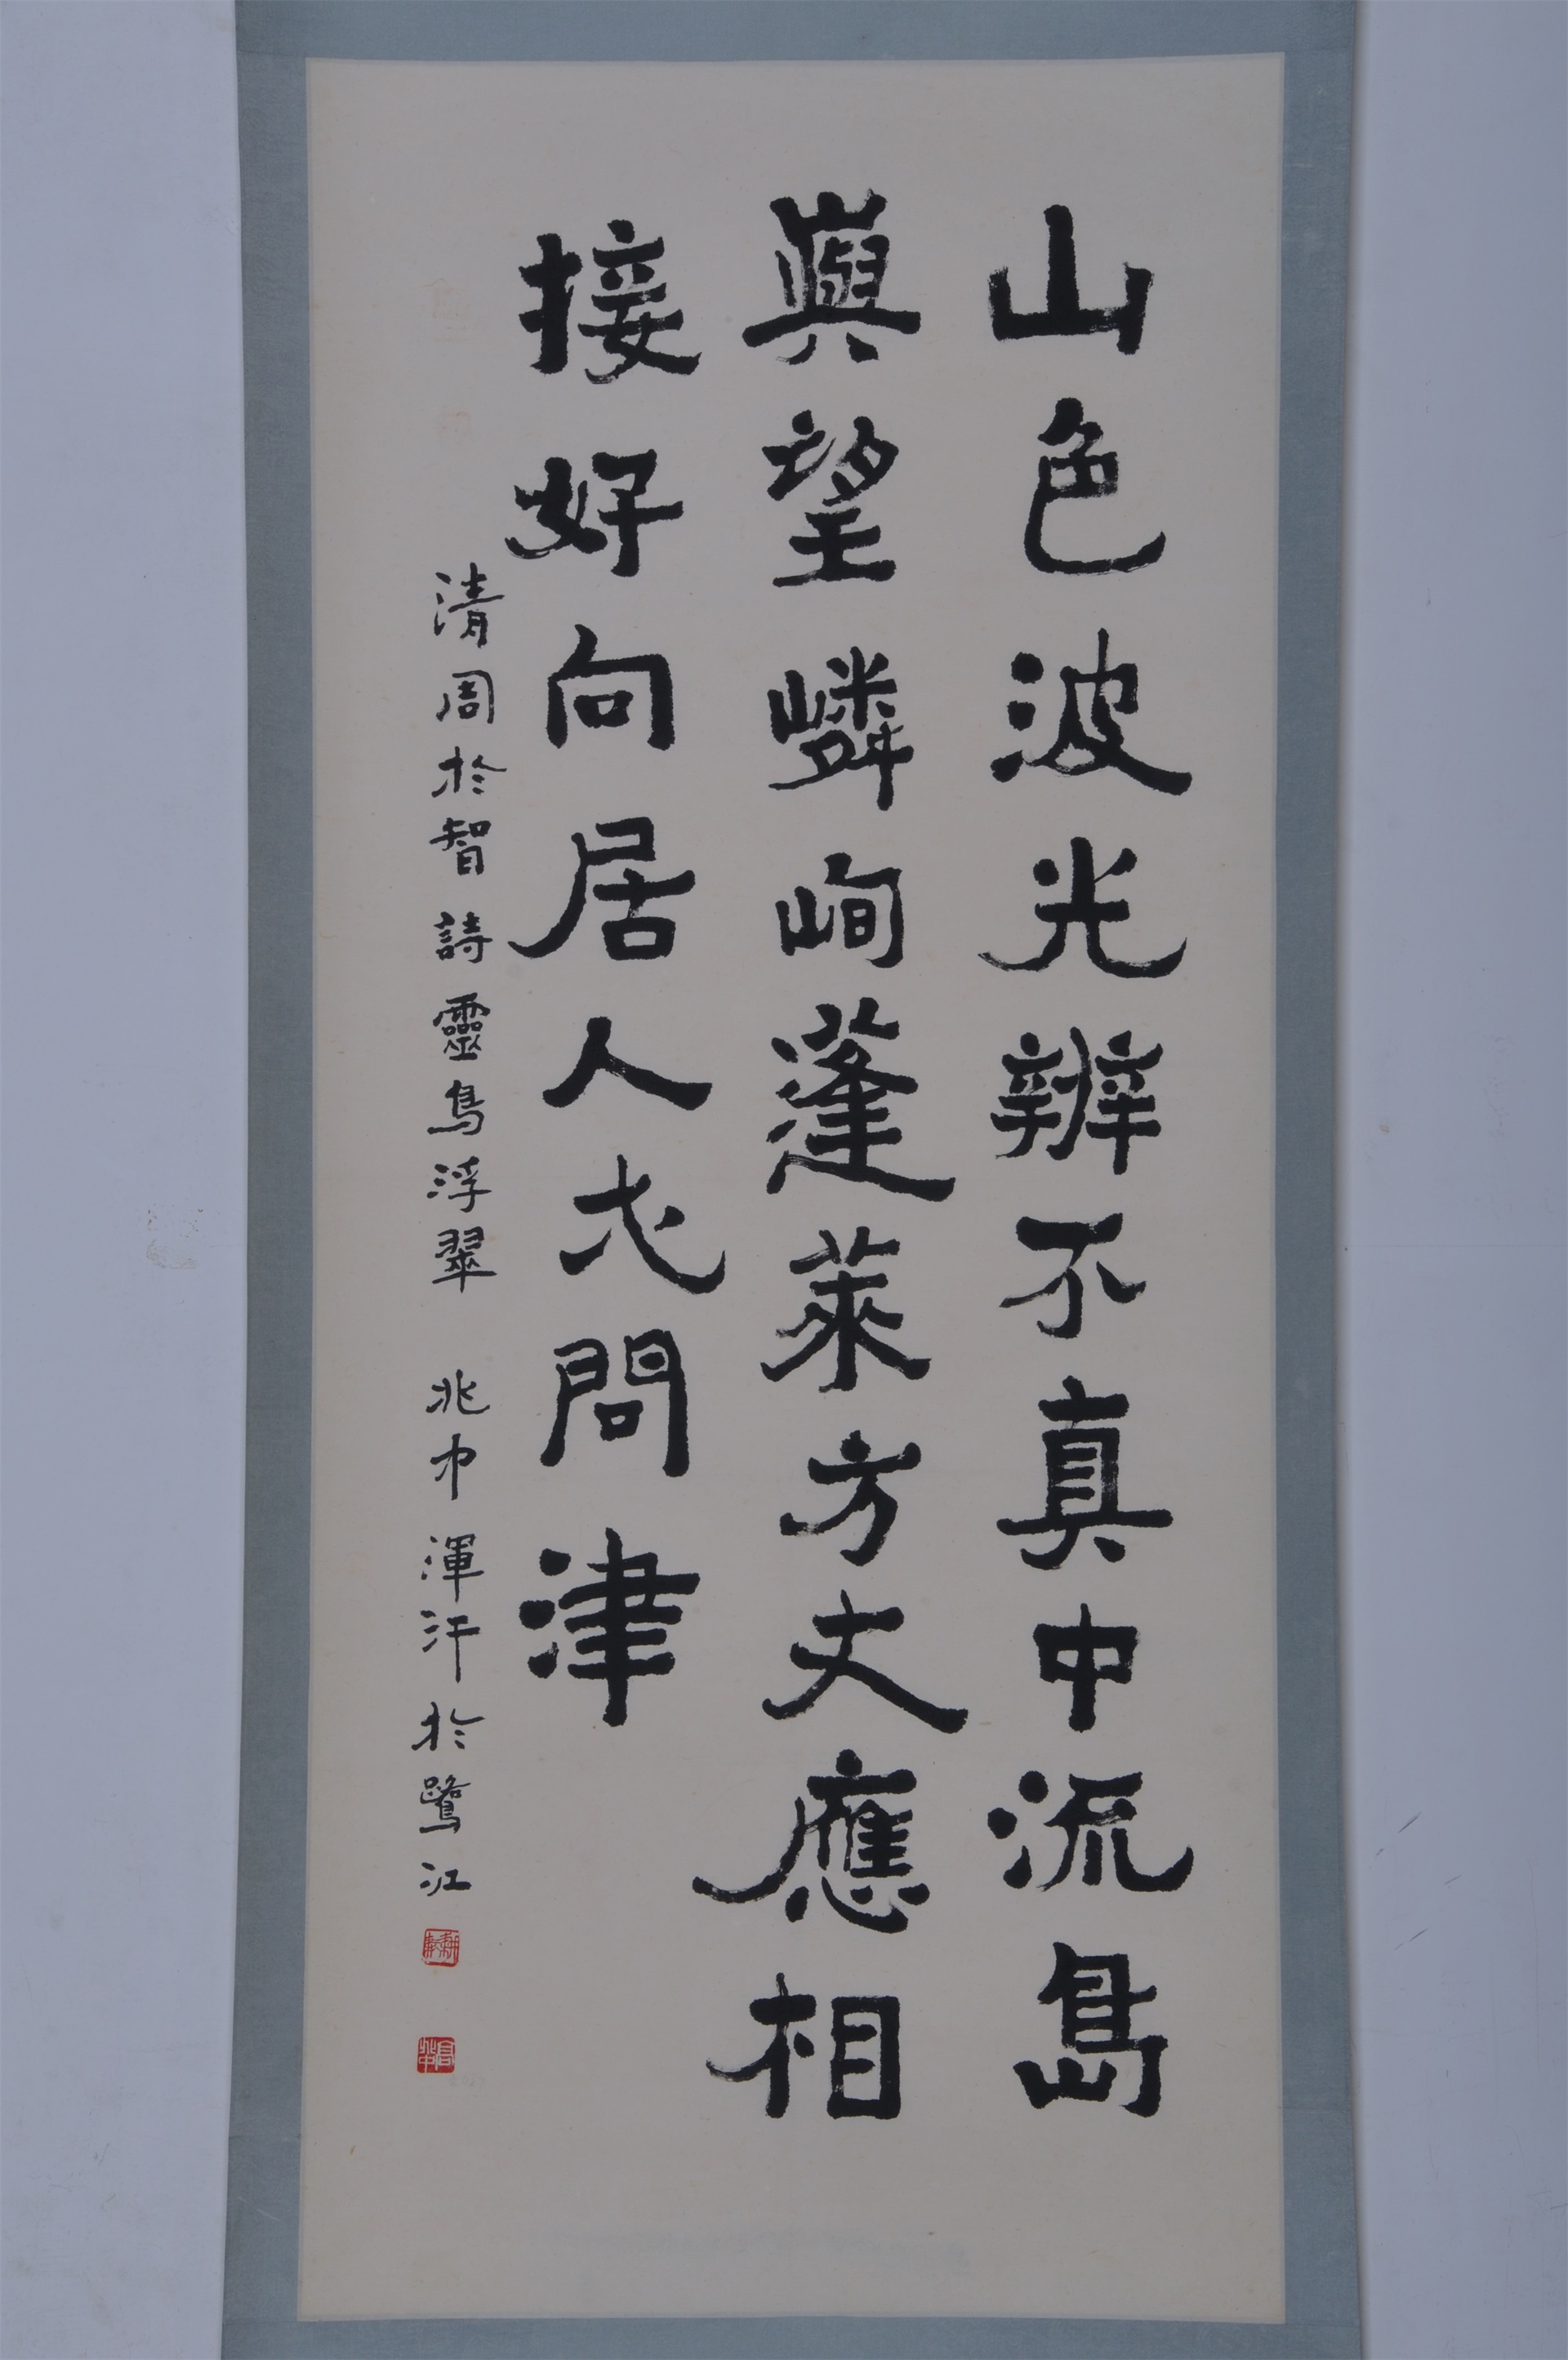 山色波光辨不真中流島
嶼望嶙峋蓬萊方丈應相
接好向居人弌問津
清周於智詩靈島浮翠 兆中渾汗於鷺江